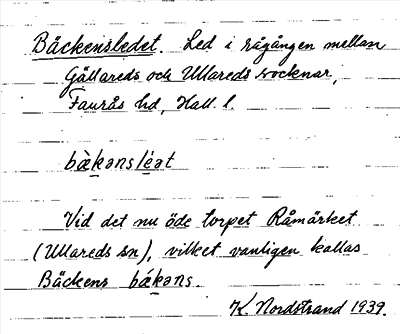 Bäckensledet. Led i rågången mellan
Gällareds och Ullareds socknar,
Faurås hd, Hall. l.
bàkənsléət
Vid det nu öde torpet Råmärket
(Ullareds sn), vilket vanligen kallas
Bäckens bákəns.
K. Nordstrand 1939.